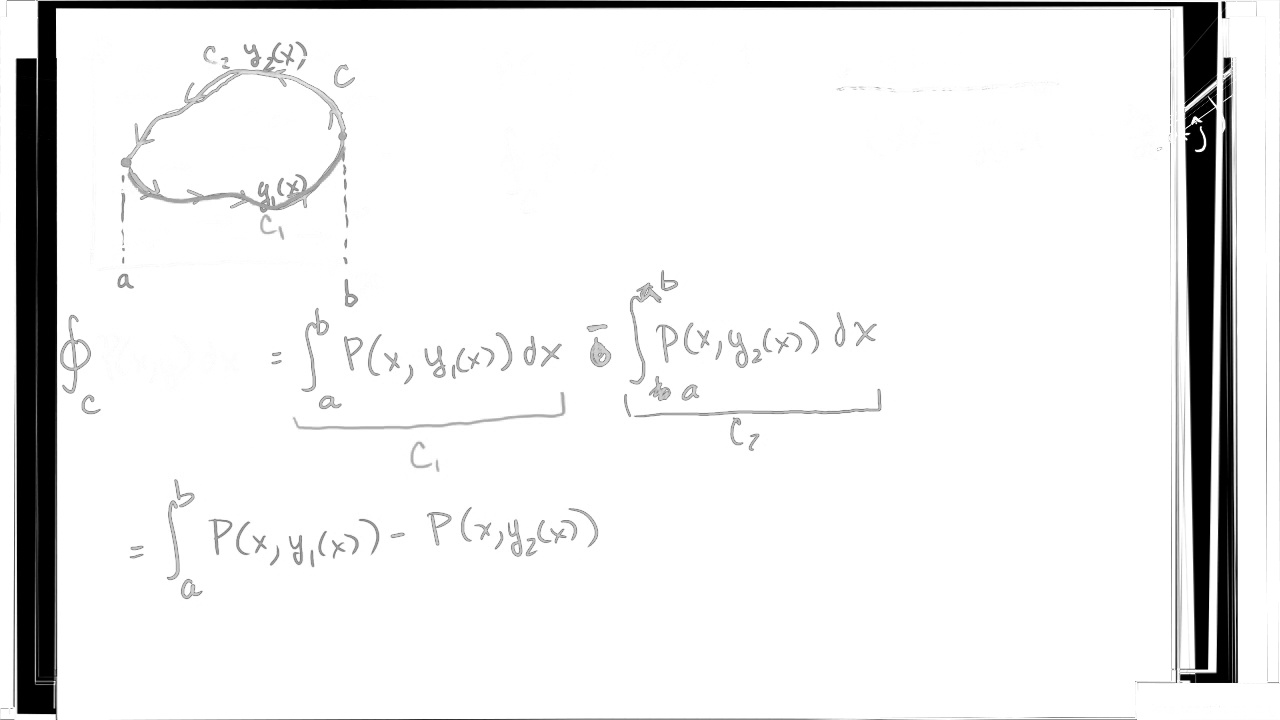 C₂ y₂(x)
C
y₁(x)
C₁
a
b
∮_C = ∫_a^b P(x, y₁(x)) dx - ∫_a^b P(x, y₂(x)) dx
C₁
C₂
= ∫_a^b P(x, y₁(x)) - P(x, y₂(x))